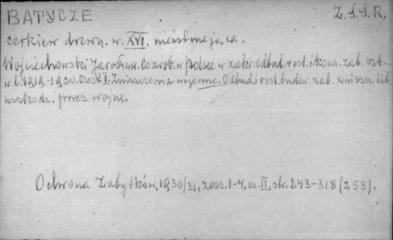 BATYCZE Z.S.S.R.
cerkiew drewn. w. XVI. nieistniejąca.
Wojciechowski Jarosław. Co zrob. w Polsce w zakr. odbud. rest. i kons. zab. ost.
w l. 1919-1920. Część I. Zniszczenia wojenne. Odbud. i rest. budow. zab. zniszcz. lub
uszkodz. przez wojnę.
Ochrona Zabytków, 1930/31, zesz. 1-4, cz. II, str. 243-318 (253).